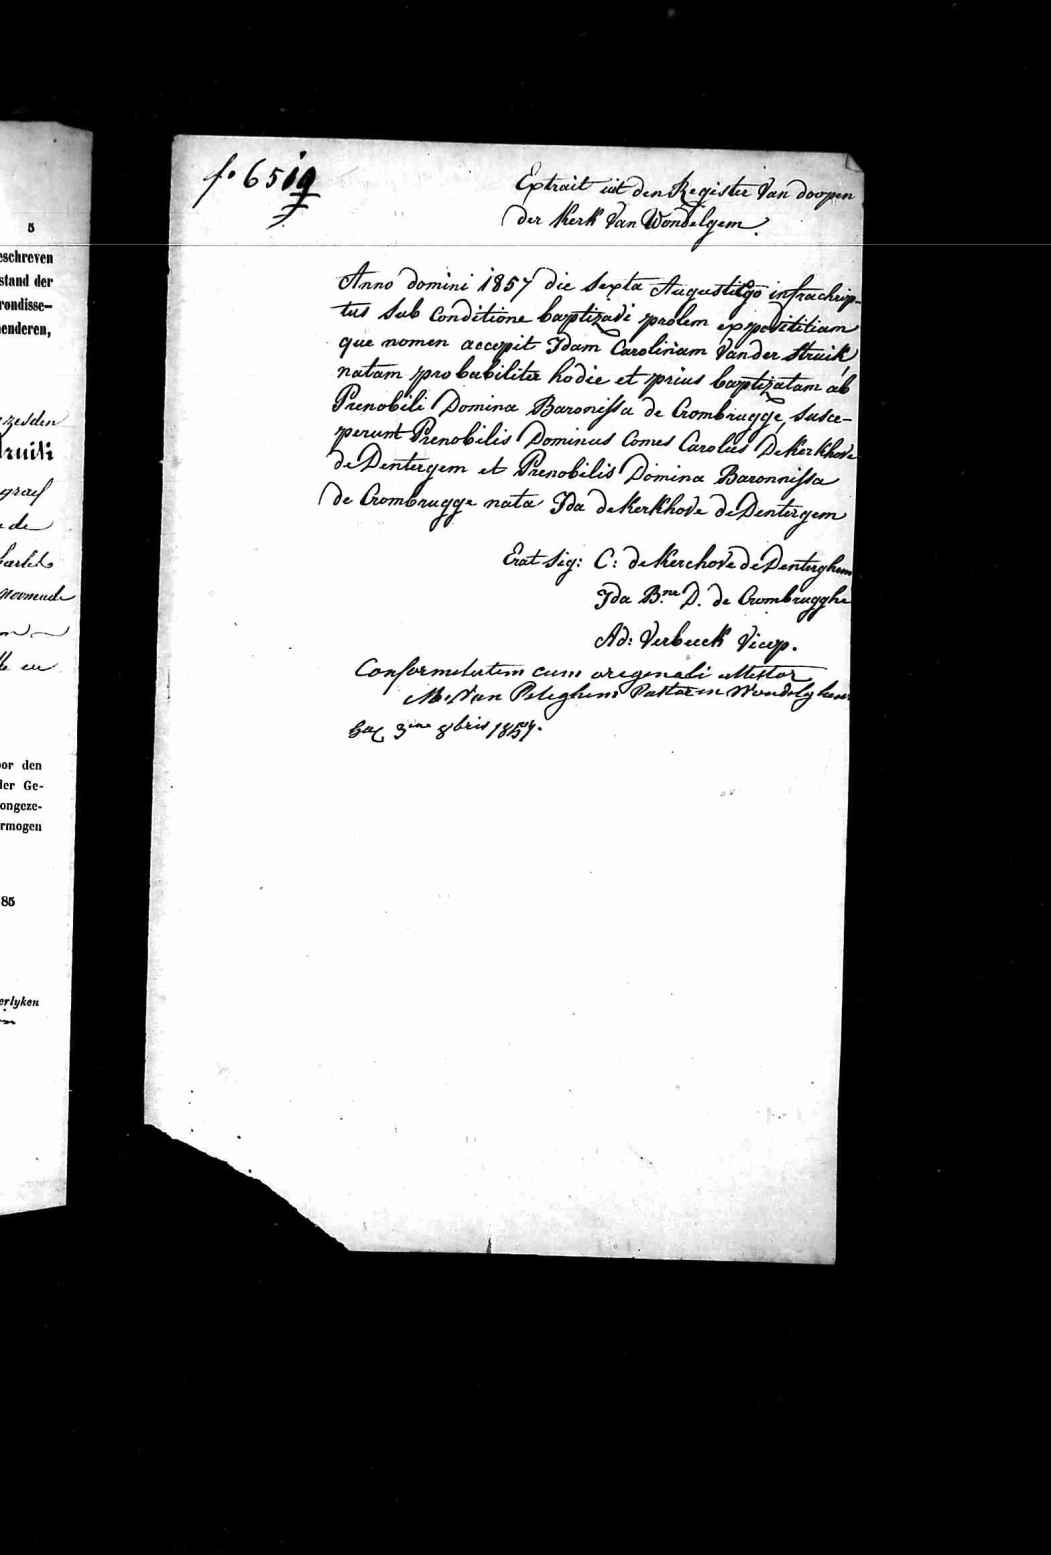 5
eschreven
stand der
rondisse-
enderen,
zesden
druili
graef
de
en
oor den
der Ge-
ongeze-
rmogen
85
erlyken
fo 6519
Extrait uit den Register Van doopen
der Kerk Van Wondelgem.
Anno domini 1857 die sexta Augusti Ego infrachrip-
tus sub Conditione baptizavi prolem expositiliam
que nomen accepit Idam Carolinam Vander Struik
natam probabiliter hodie et prius baptizatam ab
Prenobili Domina Baronissa de Crombrugge, susce-
perunt Prenobilis Dominus Comes Carolus DeKerkhove
de Dentergem et Prenobilis Domina Baronnissa
de Crombrugge nata Ida deKerkhove de Dentergem
Erat sig: C: de Kerchove de Denterghem
Ida B.ne D. de Crombrugghe
Ad: Verbeeck Vicep.
Conformitatem cum origenali attestor
Van Peteghem Pastor in Wondelghem
hac 3ma 8bris 1857.